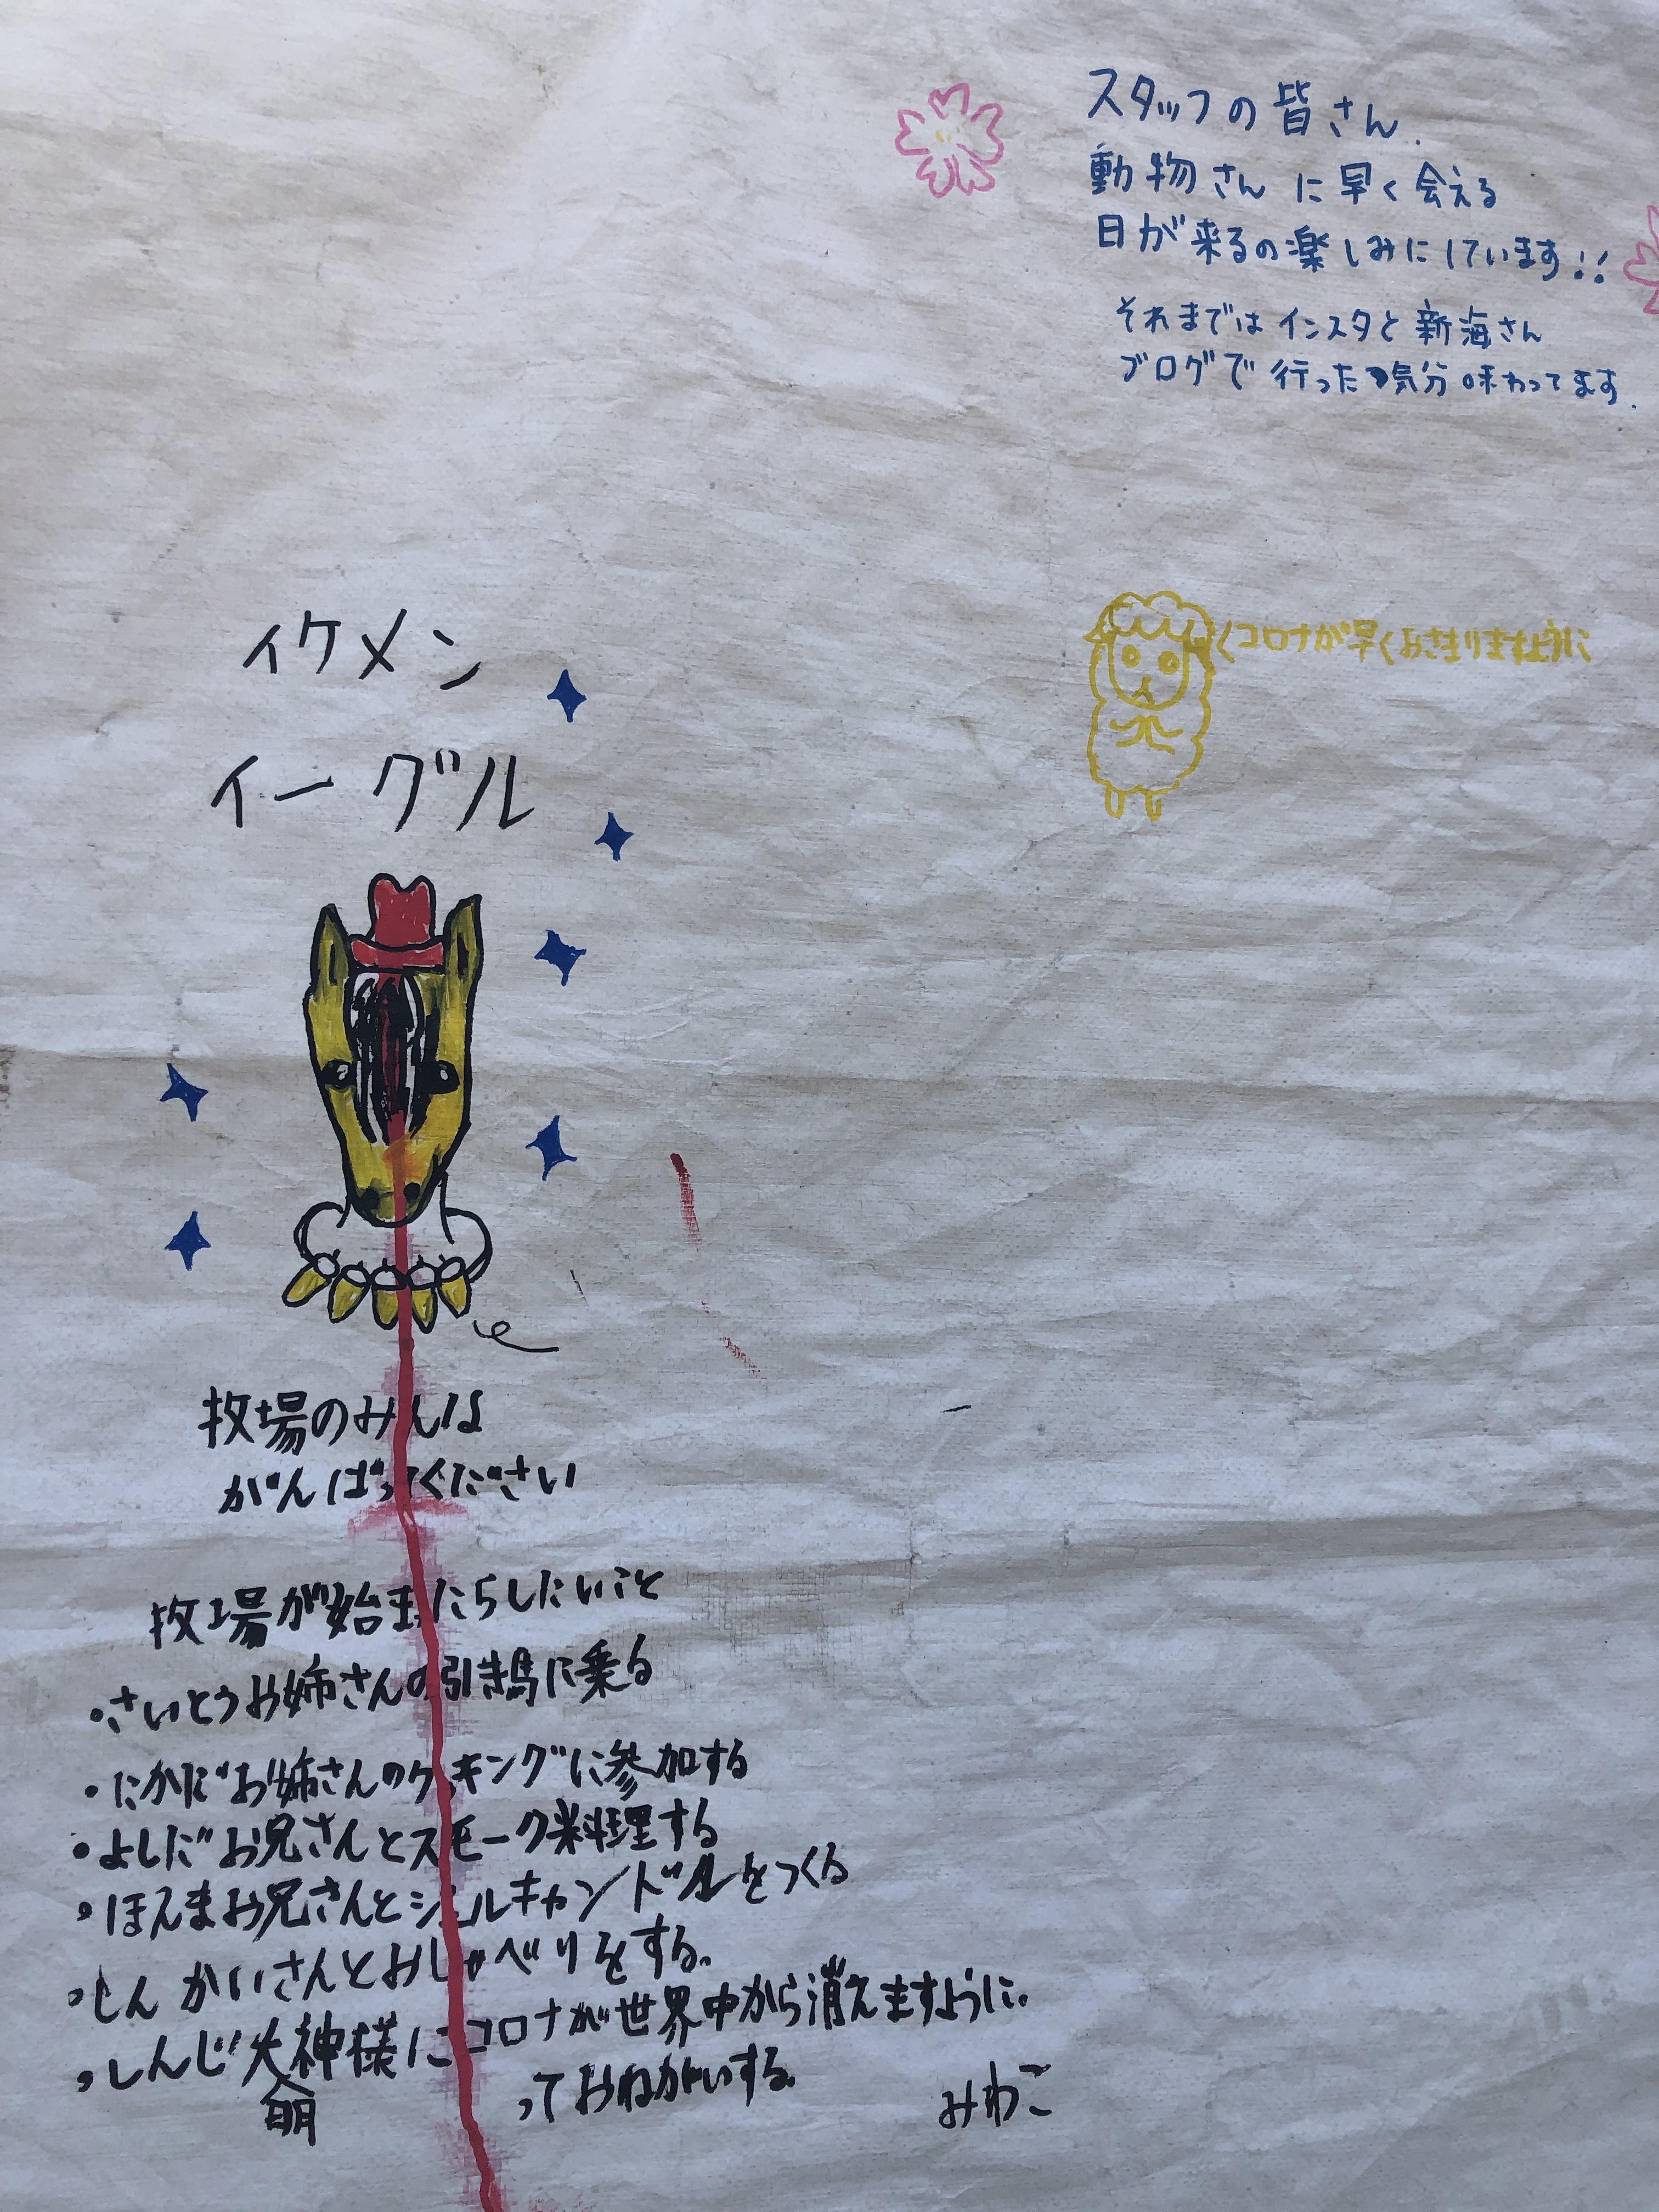 スタッフの皆さん、
動物さんに早く会える
日が来るの楽しみにしています!!
それまではインスタと新海さん
ブログで行った気分味わってます.
コロナが早くおさまりますように
イケメン
イーグル
牧場のみんな
がんばってください
牧場が始まったらしたいこと
・さいとうお姉さんの引き馬に乗る
・たかだお姉さんのクッキングに参加する
・よしだお兄さんとスモーク料理する
・ほんまお兄さんとジェルキャンドルをつくる
・しんかいさんとおしゃべりをする。
・しんじ大明神様にコロナが世界中から消えますように。
っておねがいする。
みわこ